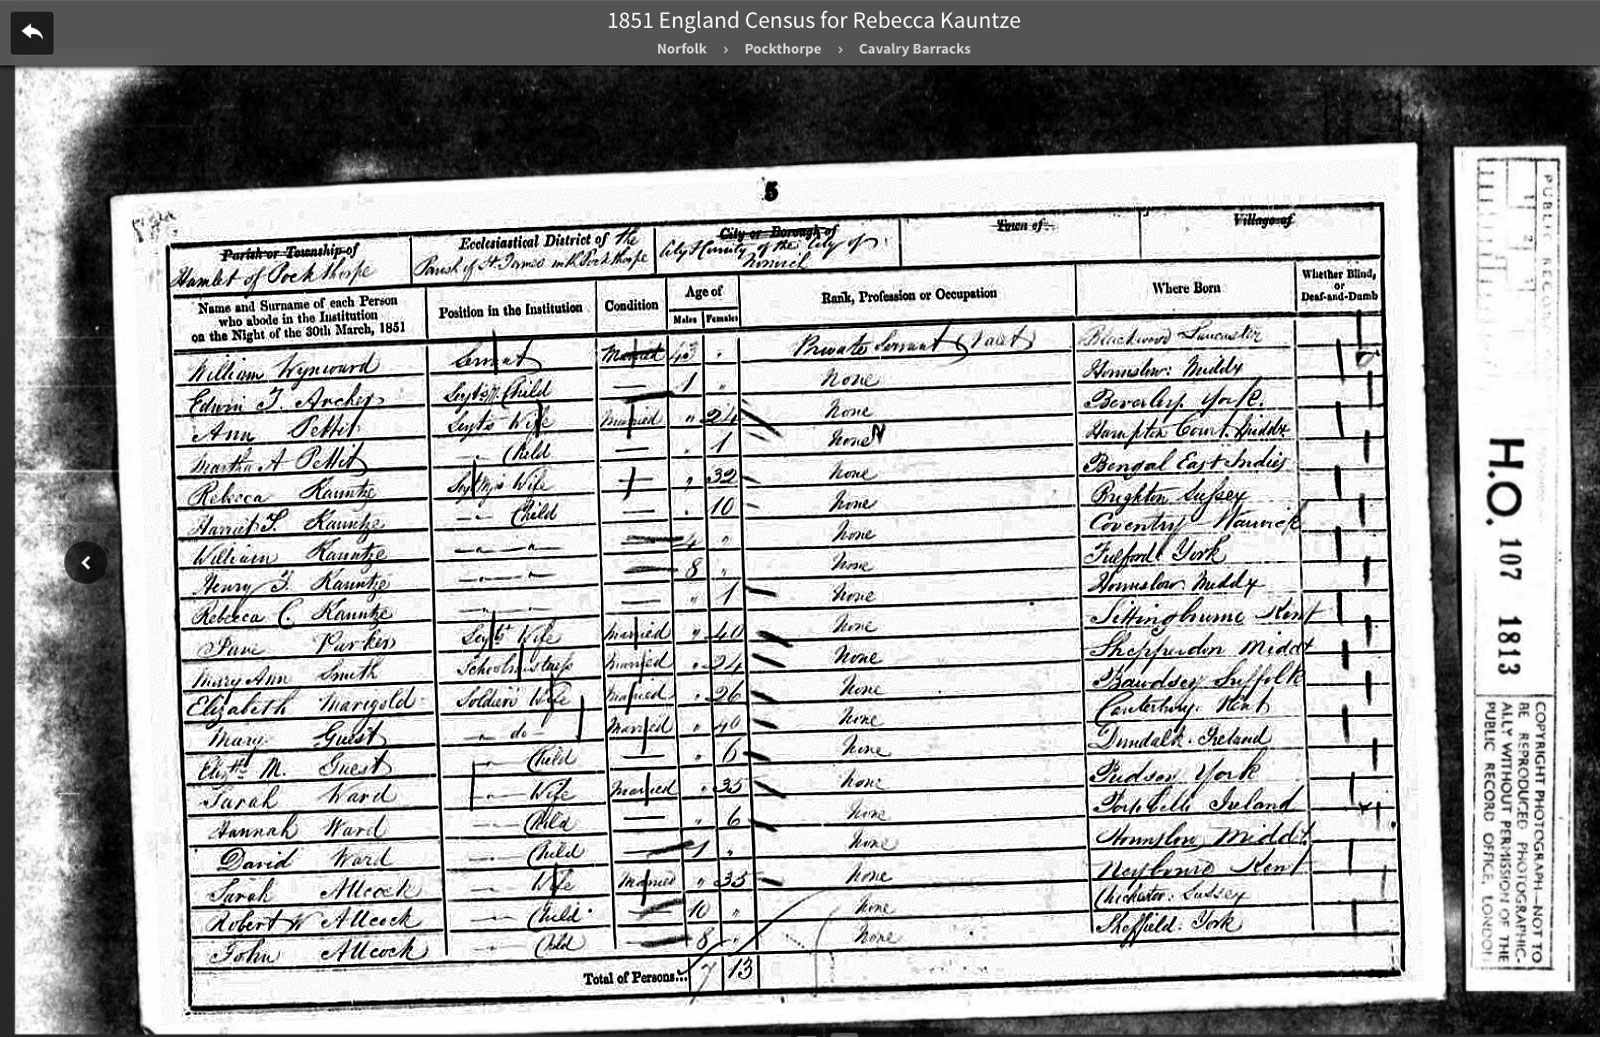 1851 England Census for Rebecca Kauntze
Norfolk › Pockthorpe › Cavalry Barracks
5
Parish or Township of
Hamlet of Pockthorpe
Ecclesiastical District of the
Parish of St. James with Pockthorpe
City or Borough of
City & County of the City of
Norwich
Town of
Village of
Name and Surname of each Person who abode in the Institution on the Night of the 30th March, 1851
Position in the Institution
Condition
Age of
Males Females
Rank, Profession or Occupation
Where Born
Whether Blind, or Deaf-and-Dumb
William Wynward Servant Married 43 " Private Servant (Valet) Blackwood Lancaster
Edwin T. Archer Child — 1 " None Hounslow Middx
Ann Pettit Sergts Wife Married " 24 None Beverley York.
Martha A Pettit " Child — " 1 None Hampton Court Middx
Rebecca Kauntze Wife " 32 None Bengal East Indies
Harriet T. Kauntze — Child — " 10 None Brighton Sussex
William Kauntze — " — " — 4 " None Coventry Warwick
Henry T. Kauntze — " — " — 8 " None Fulford York
Rebecca C. Kauntze — " — " — " 1 None Hounslow Middx
Jane Parker Sergts Wife Married " 40 None Sittingbourne Kent
Mary Ann Smith Schoolmistress Married " 24 None Shepperdon Middx
Elizabeth Marigold Soldiers Wife Married " 26 None Bawdsey Suffolk
Mary Guest — " do — Married " 40 None Canterbury Kent
Elizth M. Guest " Child — " 6 None Dundalk Ireland
Sarah Ward — " — Wife Married " 35 None Pudsey York
Hannah Ward — " — Child — " 6 None Ireland
David Ward — " — Child — 1 " None Hounslow Middx
Sarah Allcock — " — Wife Married " 35 None Kent
Robert W Allcock — " — Child — 10 " None Chichester Sussex
John Allcock — " — Child — 8 " None Sheffield York
Total of Persons... 7 13
PUBLIC RECORD
H.O. 107 1813
COPYRIGHT PHOTOGRAPH—NOT TO BE REPRODUCED PHOTOGRAPHICALLY WITHOUT PERMISSION OF THE PUBLIC RECORD OFFICE, LONDON